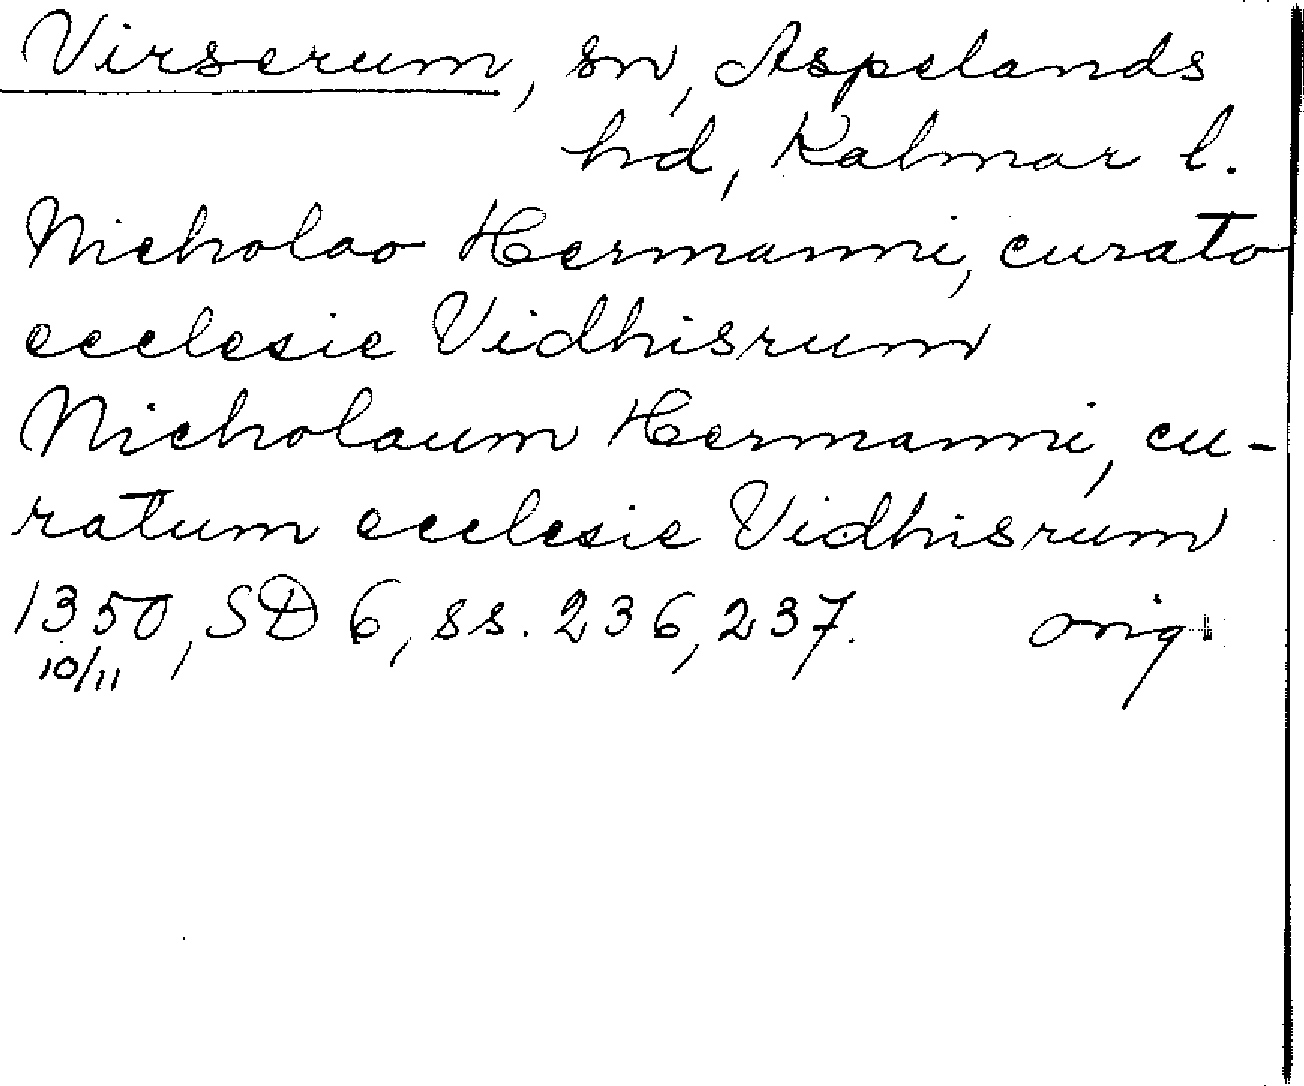 Virserum, sn, Aspelands
hd, Kalmar l.
Nicholao Hermanni, curato
ecclesie Vidhisrum
Nicholaum Hermanni, cu-
ratum ecclesie Vidhisrum
1350, SD 6, ss. 236, 237. orig.
10/11